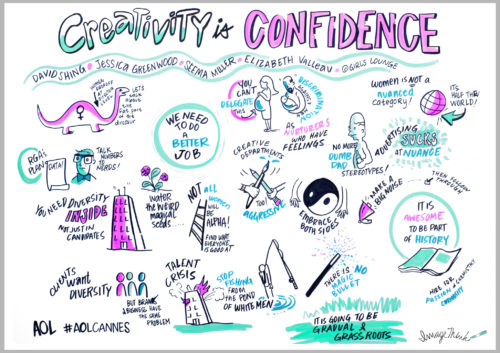 CREATIVITY is CONFIDENCE
DAVID SHING • JESSICA GREENWOOD • SEEMA MILLER • ELIZABETH VALLEAU • @GIRLS LOUNGE
LET'S
YOU
CAN'T
DELEGATE
THIS
DISCRIMINATION
AS
NURTURERS
WHO HAVE
FEELINGS
WOMEN IS NOT A
NUANCED
CATEGORY!
IT'S
HALF THE
WORLD!
WE NEED
TO DO
A
BETTER
JOB
R/GA'S
PLAN:
DATA!
TALK
NUMBERS
TO
NERDS!
CREATIVE
DEPARTMENTS
TOO
AGGRESSIVE
NO MORE
DUMB
DAD
STEREOTYPES!
ADVERTISING
SUCKS
AT NUANCE
MAKE A
BIG NOISE
THEN FOLLOW
THROUGH
YOU NEED DIVERSITY
INSIDE
NOT JUST IN
CANDIDATES
WATER
THE WEIRD
MAGICAL
SEEDS...
NOT all
WOMEN
WILL
BE
ALPHA!
FIND WHAT
EVERYONE
IS GOOD AT
EMBRACE
BOTH SIDES
IT IS
AWESOME
TO BE PART
OF HISTORY
HIRE FOR
PASSION & CHEMISTRY
CLIENTS
WANT
DIVERSITY
BUT BRANDS
& BUSINESS HAVE
THE SAME
PROBLEM
TALENT
CRISIS
STOP
FISHING
FROM
THE POND
OF WHITE MEN
THERE IS NO
MAGIC
BULLET
IT IS GOING TO BE
GRADUAL &
GRASSROOTS
AOL #AOLCANNES
ImageThink